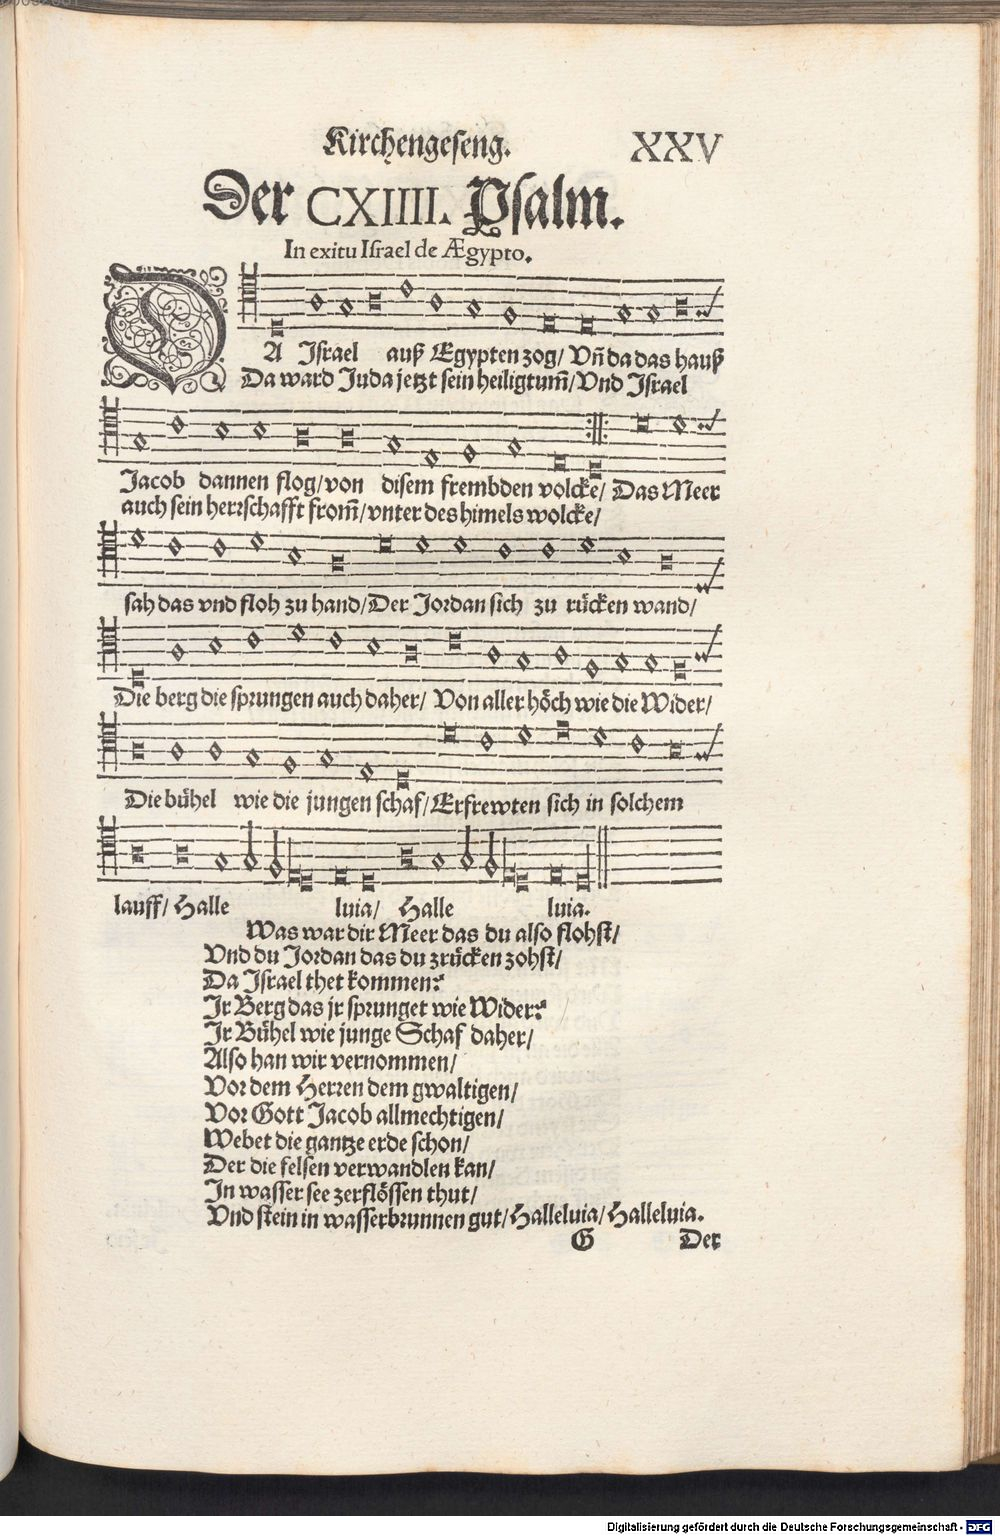 Kirchengeseng. XXV
Der CXIIII. Psalm.
In exitu Israel de Ægypto.
DA Israel auß Egypten zog/ Vñ da das hauß
Da ward Juda jetzt sein heiligtum̃/ Vnd Israel
Jacob dannen flog/ von disem frembden volcke/ Das Meer
auch sein herrschafft from̃/ vnter des himels wolcke/
sah das vnd floh zu hand/ Der Jordan sich zu rücken wand/
Die berg die sprungen auch daher/ Von aller höch wie die Wider/
Die bühel wie die jungen schaf/ Erfrewten sich in solchem
lauff/ Halle luia/ Halle luia.
Was war dir Meer das du also flohst/
Vnd du Jordan das du zrücken zohst/
Da Israel thet kommen?
Jr Berg das jr sprunget wie Wider?
Jr Bühel wie junge Schaf daher/
Also han wir vernommen/
Vor dem Herren dem gwaltigen/
Vor Gott Jacob allmechtigen/
Webet die gantze erde schon/
Der die felsen verwandlen kan/
In wasser see zerflössen thut/
Vnd stein in wasserbrunnen gut/ Halleluia/ Halleluia.
G Der
Digitalisierung gefördert durch die Deutsche Forschungsgemeinschaft - DFG